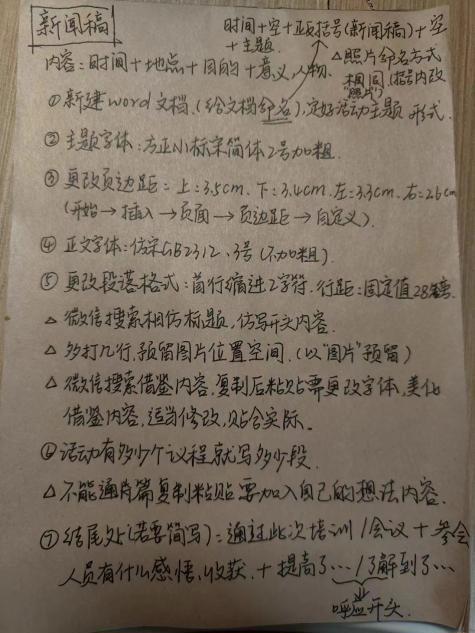 新闻稿
时间+空+正项括号(新闻稿)+空
+主题.
△照片命名方式
相同(括号内改
照片)
内容:时间+地点+目的+意义,人物.
①新建word文档.(给文档命名),定好活动主题 形式.
②主题字体:方正小标宋简体2号加粗.
③更改页边距=上:3.5cm.下:3.4cm.左:3.3cm.右=2.6cm
(开始→插入→页面→页边距→自定义).
④正文字体:仿宋GB2312、3号(不加粗).
⑤更改段落格式:首行缩进2字符.行距:固定值28磅.
△微信搜索相仿标题,仿写开头内容.
△多打几行,预留图片位置空间.(以"图片"预留)
△微信搜索借鉴内容.复制后粘贴需更改字体,美化
借鉴内容,适当修改,贴合实际。
⑥活动有多少个议程就写多少段.
△不能通片篇复制粘贴要加入自己的想法内容.
⑦结尾处(若要简写):通过此次培训/会议+参会
人员有什么感悟、收获.+提高了…/了解到了…
呼应开头.